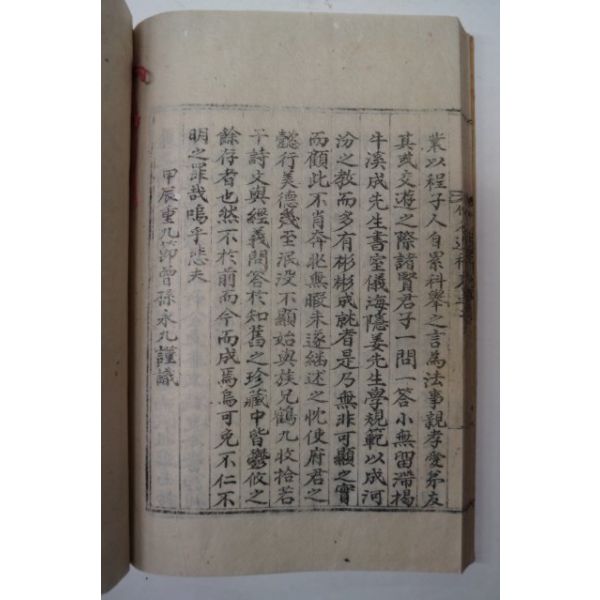 業以程子人自累科擧之言為法事親孝愛弟友
其或交遊之際諸賢君子一問一答小無留滯揭
牛溪成先生書室儀海隱姜先生學規範以成河
汾之教而多有彬彬成就者是乃無非可顯之實
而顧此不肖奔㲼無暇未遂繼述之忱使府君之
懿行美德幾至泯没不顯始與族兄鶴九收拾若
干詩文與經義問答於知舊之珍藏中皆鬱攸之
餘存者也然不於前而今而成焉烏可免不仁不
明之罪哉嗚乎悲夫
甲辰重九節曾孫永九謹識